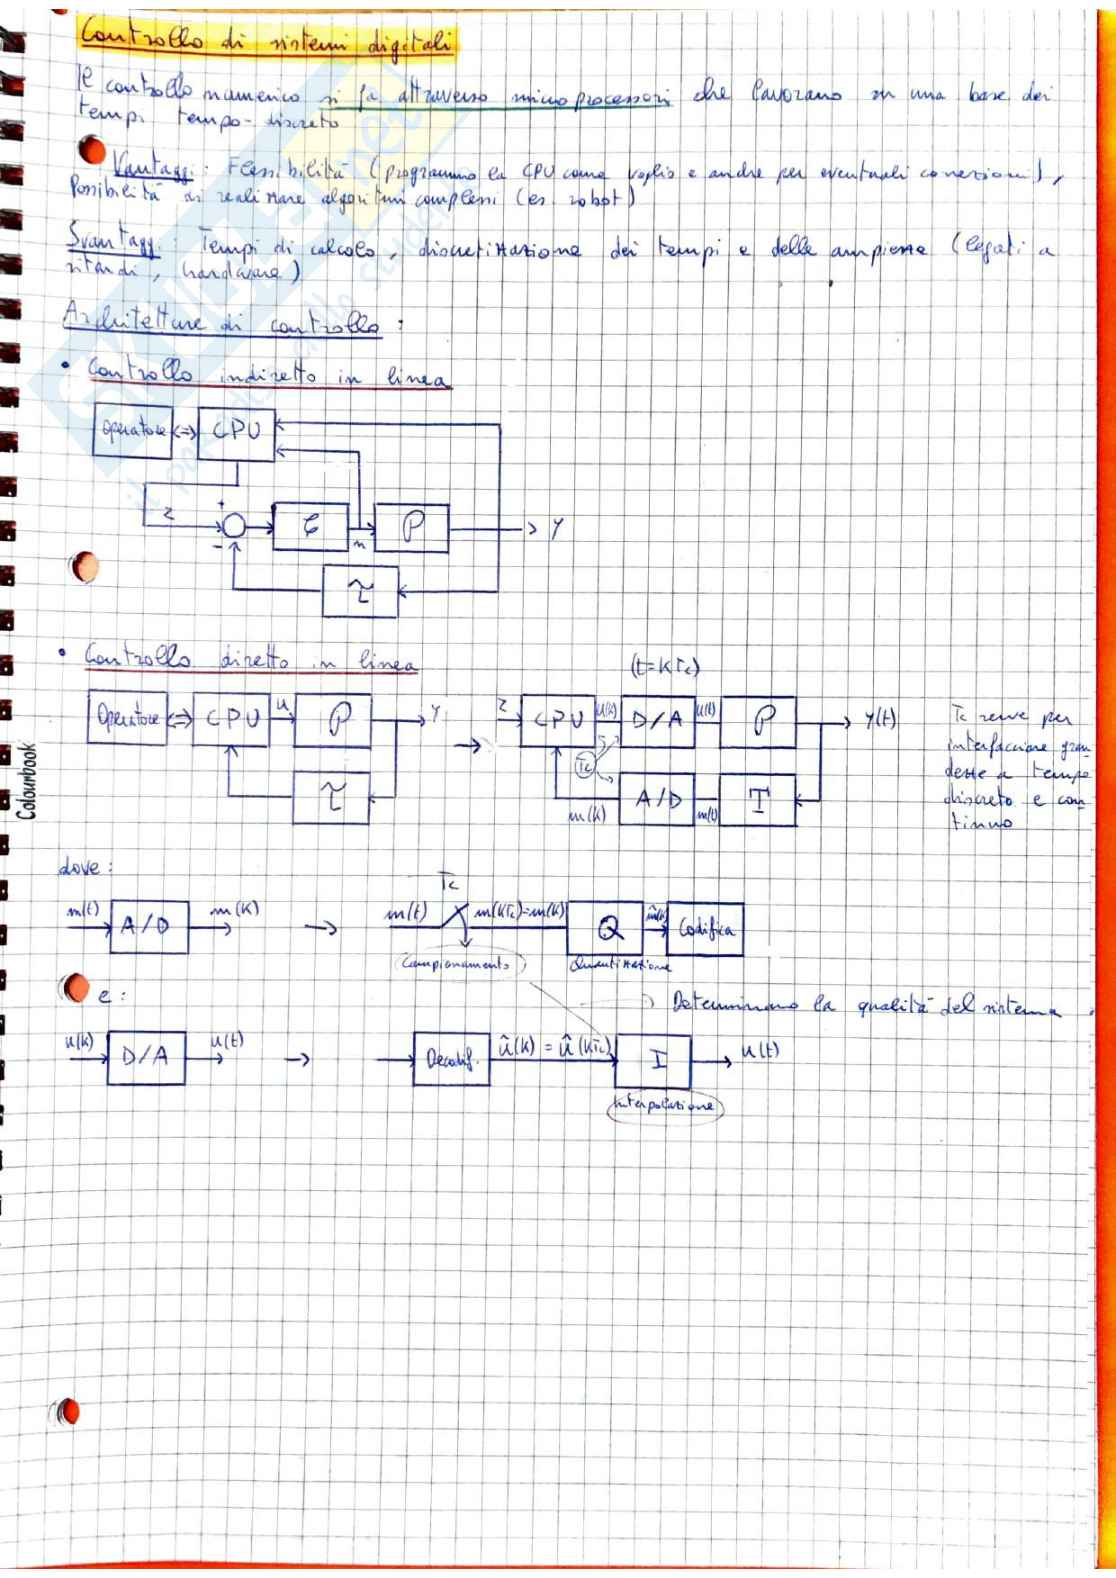 Controllo di sistemi digitali
Il controllo numerico si fa attraverso microprocessori che lavorano su una base dei
tempi tempo-discreto
Vantaggi: Flessibilità (programmo la CPU come voglio e anche per eventuali correzioni),
Possibilità di realizzare algoritmi complessi (es. robot)
Svantaggi: Tempi di calcolo, discretizzazione dei tempi e delle ampiezze (legati a
ritardi, hardware)
Architetture di controllo:
• Controllo indiretto in linea
Operatore <=> CPU
z + - C u P y
τ
• Controllo diretto in linea (t=KTc)
Operatore <=> CPU u P y
τ
z CPU u(k) D/A u(t) P y(t)
Tc
m(k) A/D m(t) T
Tc serve per
interfacciare gran
dezze a tempo
discreto e con
tinuo
Colourbook
dove:
m(t) A/D m(k) Tc m(t) m(KTc)=m(k) Q m̂(k) Codifica
Campionamento Quantizzazione
e: Determinano la qualità del sistema.
u(k) D/A u(t) Decodif. û(k) = û(KTc) I u(t)
Interpolazione